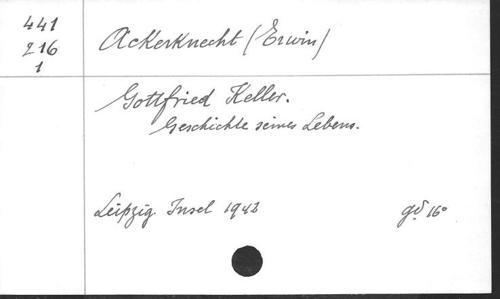 441
216
1
Ackerknecht (Erwin)
Gottfried Keller.
Geschichte seines Lebens.
Leipzig. Insel 1942
gd 16°